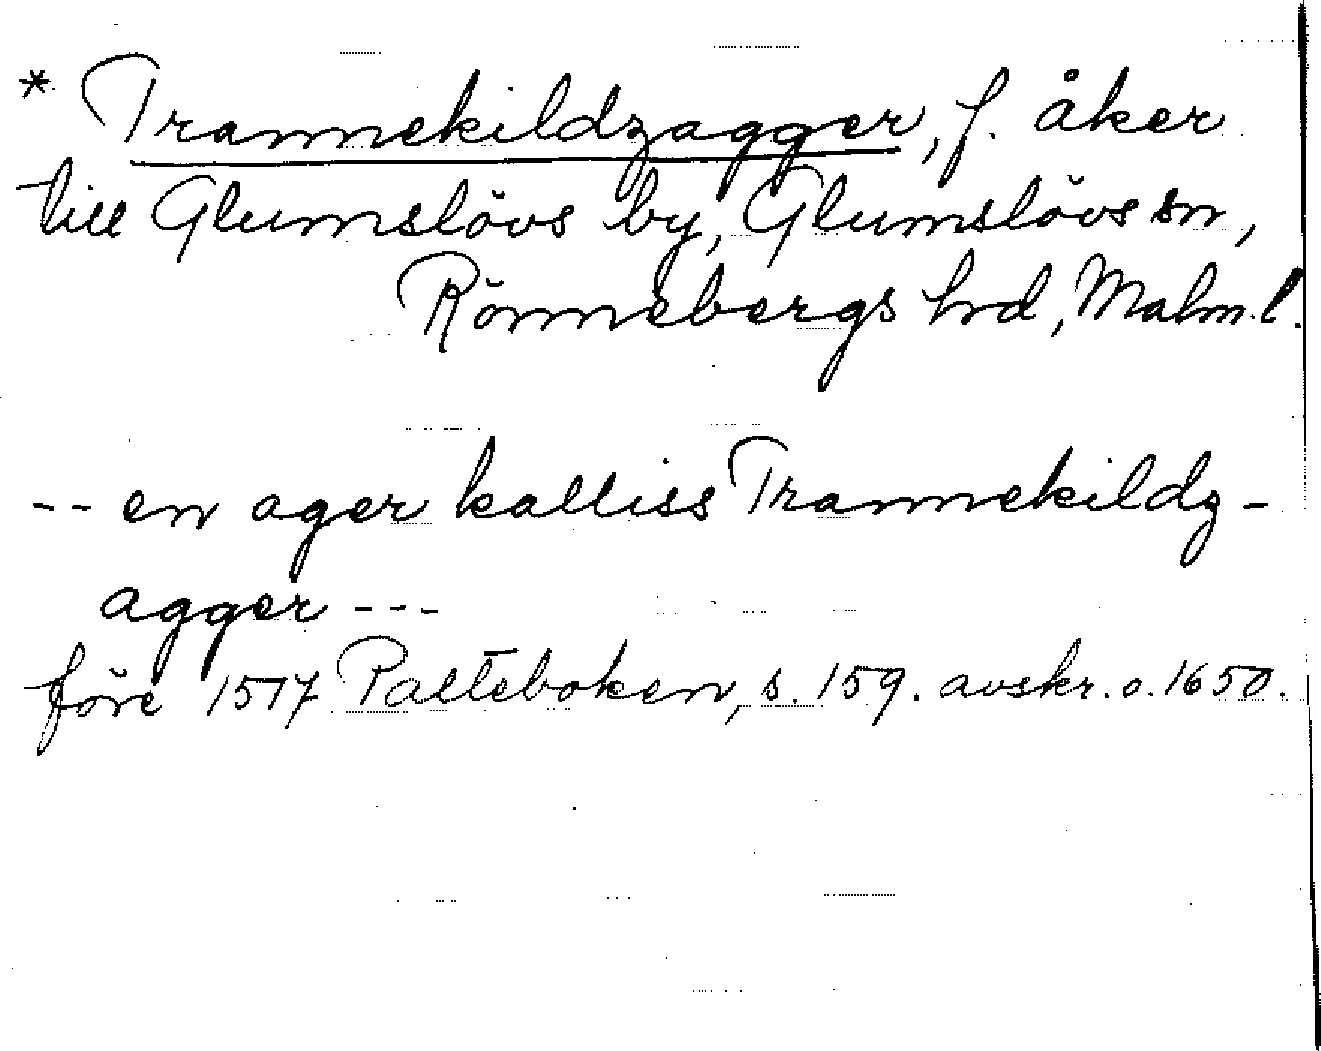 * Trannekildzagger, f. åker
till Glumslövs by, Glumslövs sn,
Rönnebergs hrd, Malm.l.
-- en ager kalliss Trannekildz-
agger ---
före 1517 Palteboken, s. 159. avskr. o. 1650.